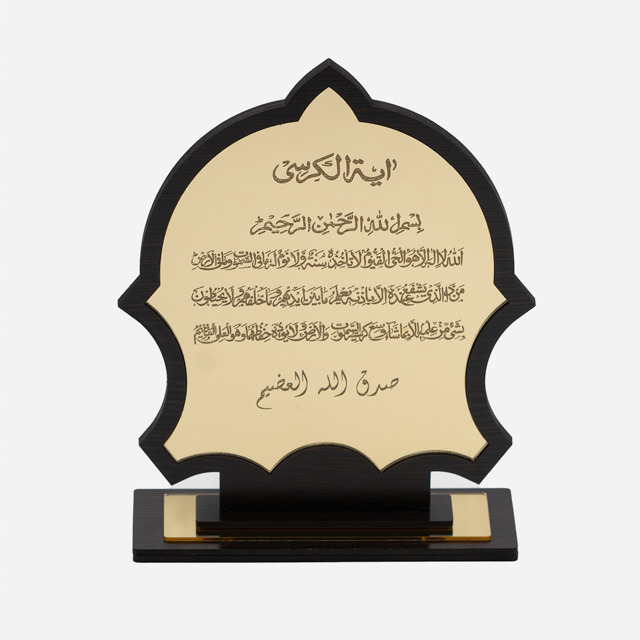 اية الكرسي
بسم الله الرحمن الرحيم
الله لا اله الا هو الحي القيوم لا تأخذه سنة ولا نوم له ما في السموت وما في الارض
من ذا الذي يشفع عنده الا باذنه يعلم ما بين أيديهم وما خلفهم ولا يحيطون
بشئ من علمه الا بما شاء وسع كرسيه السموت والارض ولا يؤده حفظهما وهو العلي العظيم
صدق الله العضيم